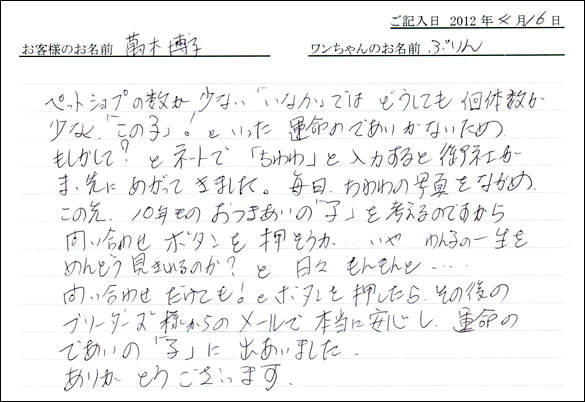 ご記入日 2012 年 4 月 16 日
お客様のお名前 萬木 博子 ワンちゃんのお名前 ぷりん
ペットショプの数が少ない「いなか」では どうしても 個体数が
少なく、「この子」！といった 運命のであいがないため、
もしかして？とネートで「ちわわ」と入力すると御社が
ま、先にめがってきました。毎日、ちわわの写真をながめ、
この先、10年もの おつきあいの「子」を考えるのですから
問い合わせ ボタンを 押そうか…いや わん子の一生を
めんどう見きれるのか？と 日々 もんもんと……
問い合わせ だけでも！とボタンを押したら、その後の
ブリーダーズ様からのメールで本当に安心し、運命の
であいの「子」に 出あいました。
ありがとうございます。